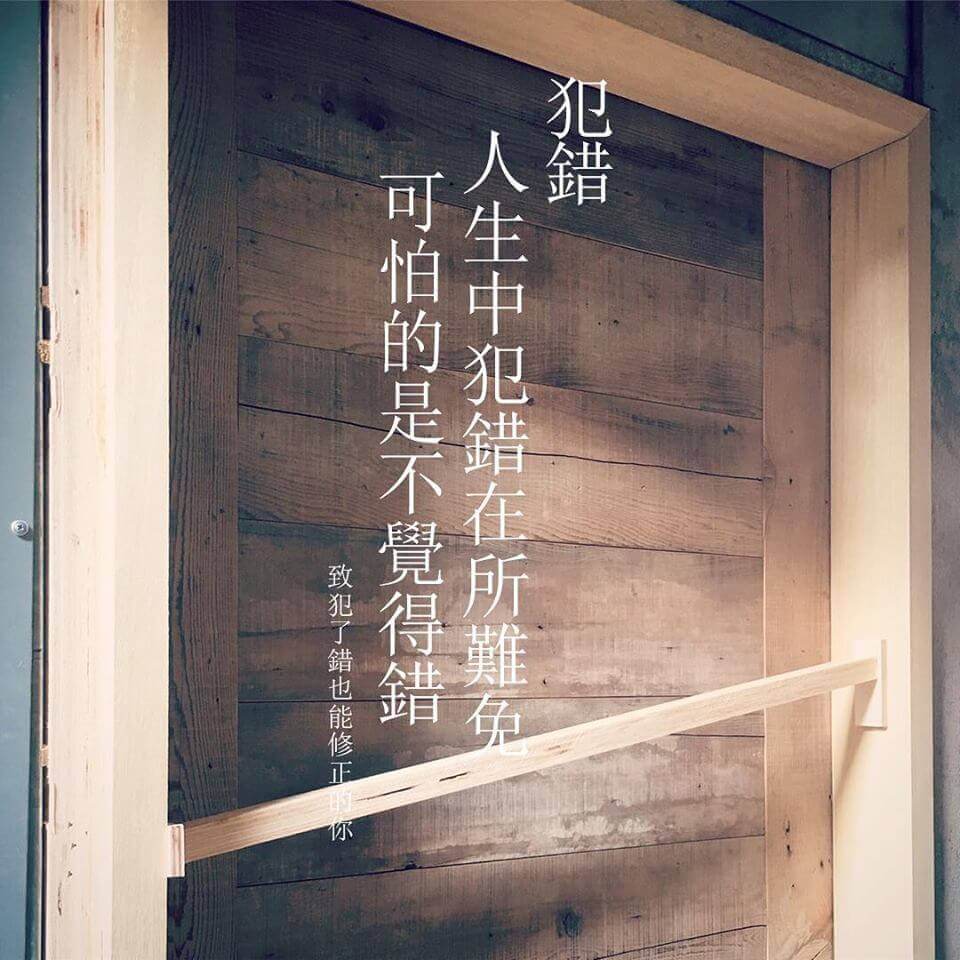 犯錯
人生中犯錯在所難免
可怕的是不覺得錯
致犯了錯也能修正的你